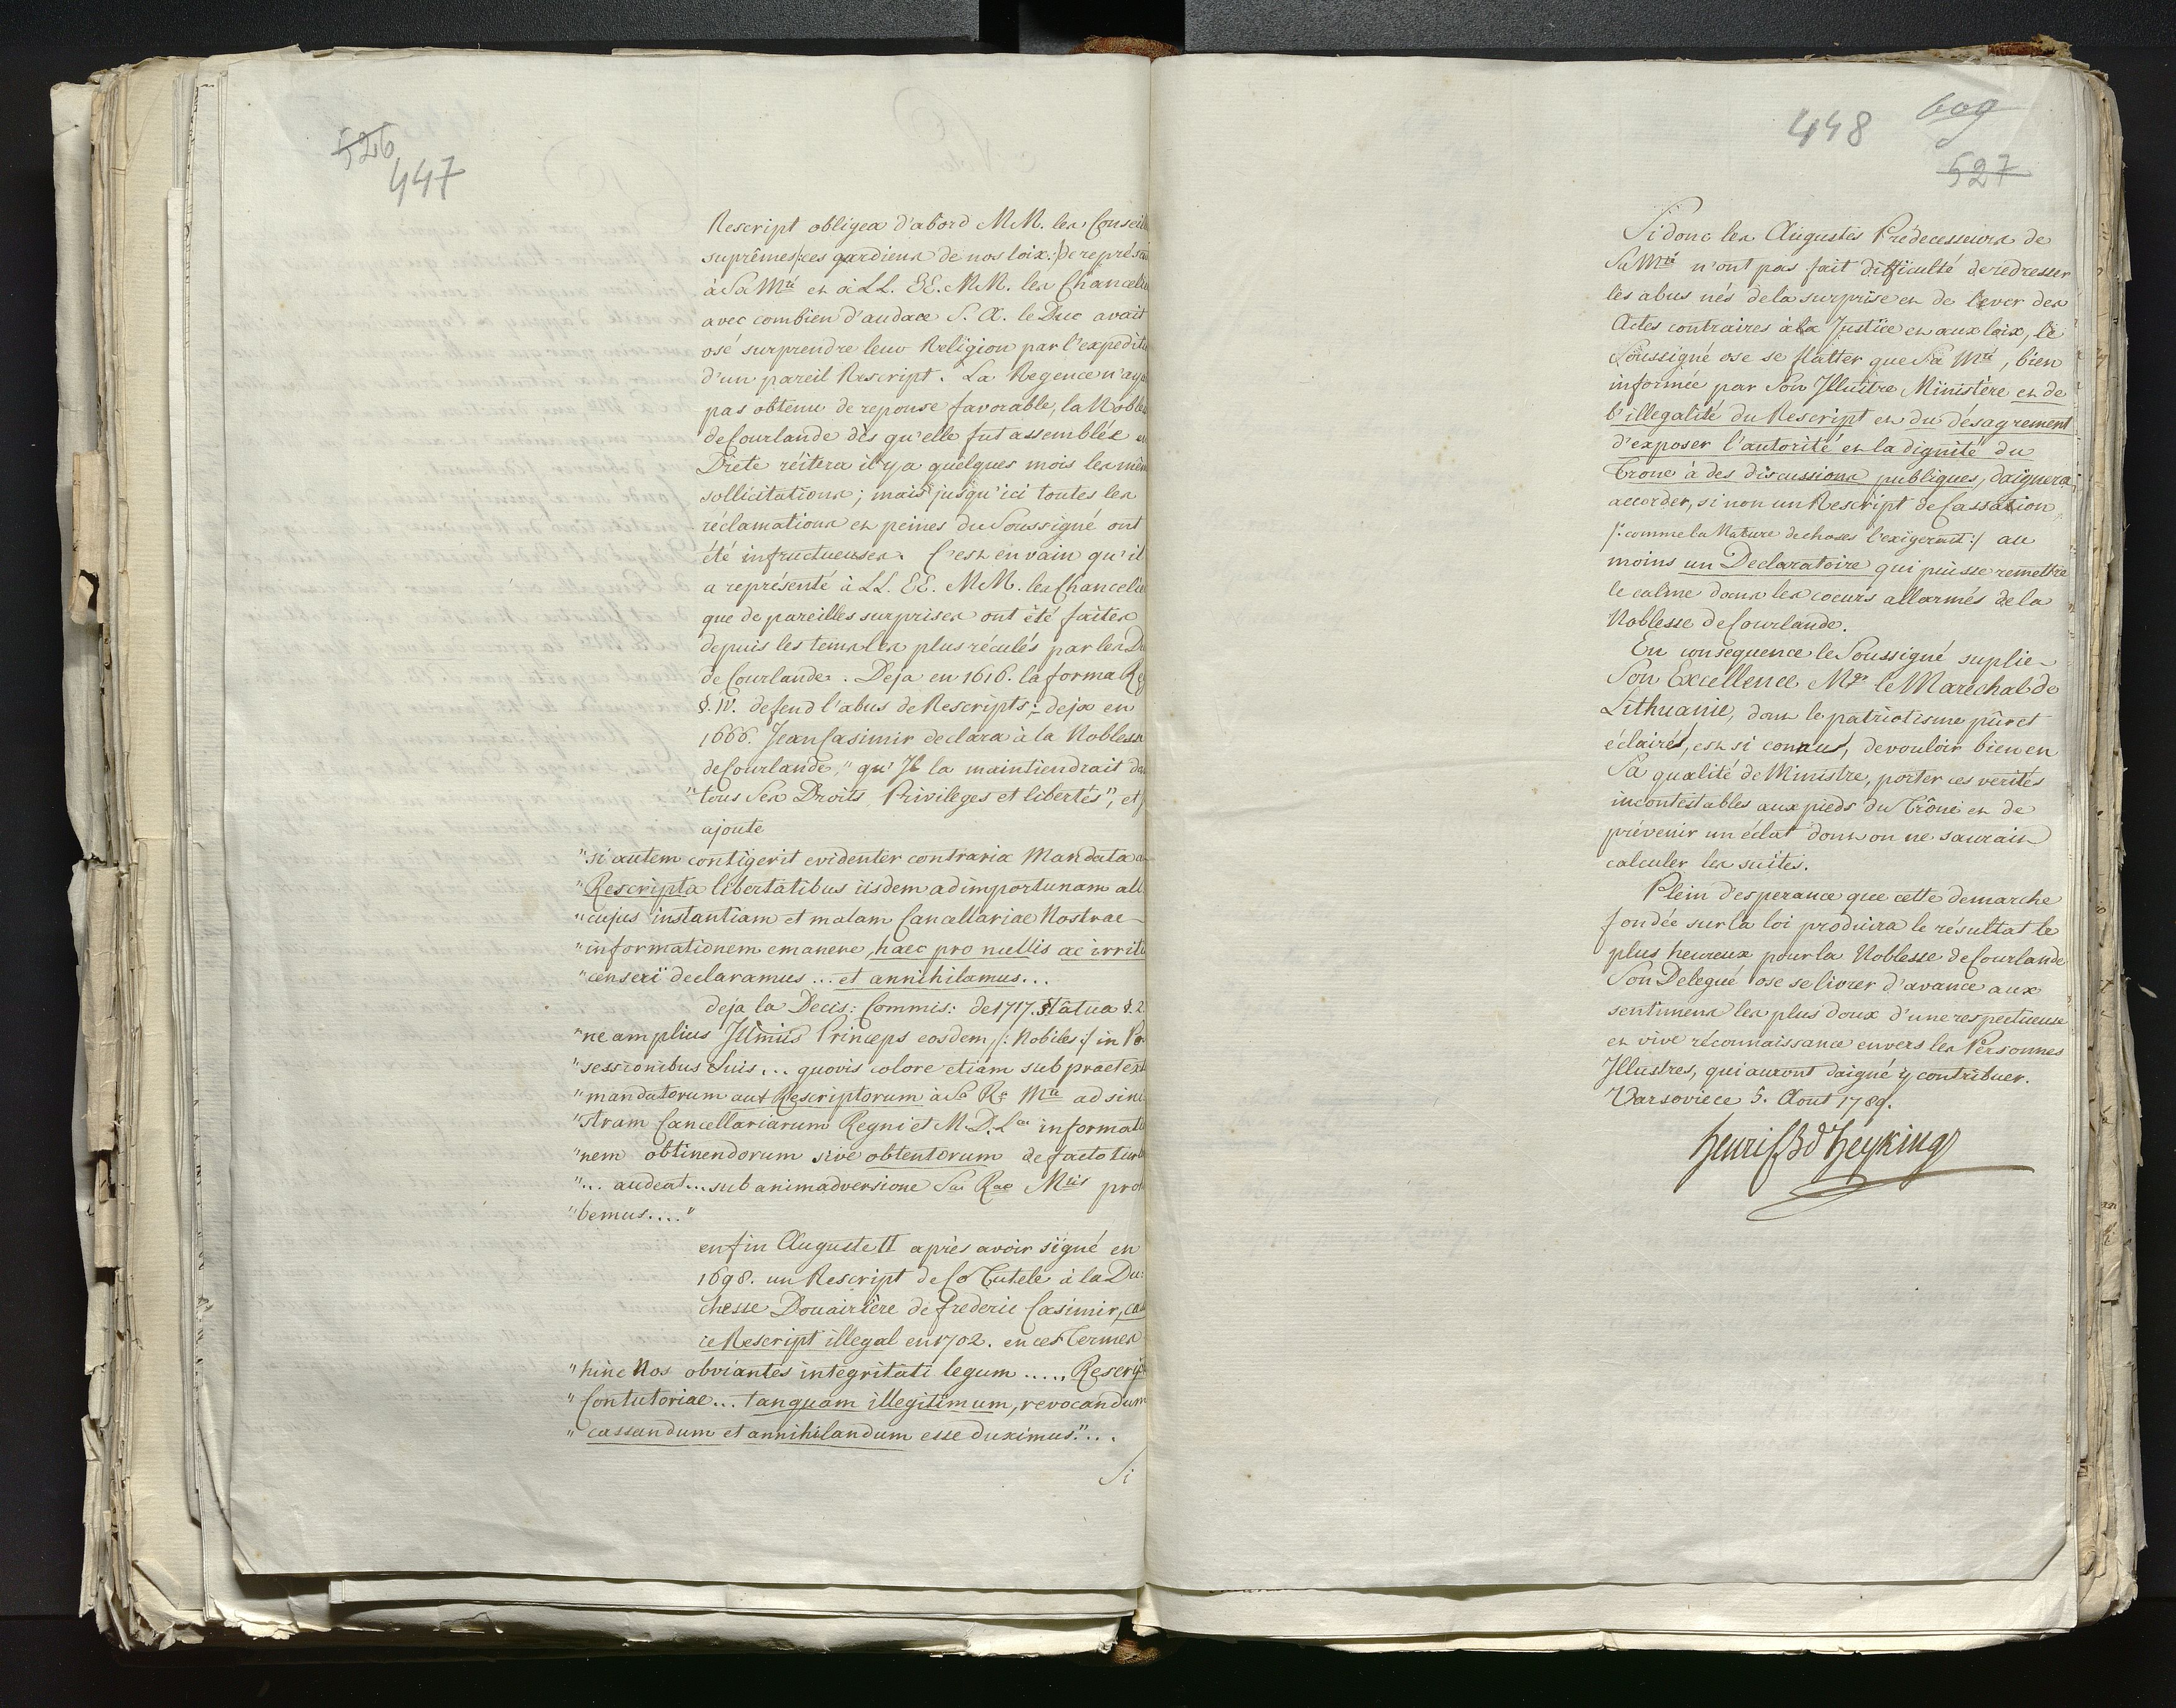 526
447
Rescript obligea d'abord MM. les Conseill
suprêmes /:ces gardiens de nos loix:/ de représen
à Sa Mté et à LL. EE. MM. les Chanceli
avec combien d'audace S. A. le Duc avait
osé surprendre leur Religion par l'expediti
d'un pareil Rescript. La Regence n'aya
pas obtenu de reponse favorable, la Nobles
de Courlande dès qu'elle fut assemblée en
Diete réitera il y a quelques mois les mêm
sollicitations; mais jusqu'ici toutes les
réclamations et peines du Soussigné ont
été infructueuses. C'est en vain qu'il
a représenté à LL. EE. MM. les Chancelie
que de pareilles surprises ont été faites
depuis les tems les plus réculés par les Du
de Courlande. Deja en 1616. la forma Reg
§. IV. defend l'abus de Rescripts; deja en
1666. Jean Casimir declara à la Noblesse
de Courlande, "qu'Il la maintiendrait da
"tous Ses Droits, Privileges et libertés", et
ajoute
"si autem contigerit evidenter contraria Mandata a
"Rescripta libertatibus iisdem ad importunam ali
"cujus instantiam et malam Cancellariae Nostrae
"informationem emanere, haec pro nullis ac irriti
"censeri declaramus ... et annihilamus...
deja la Decis: Commis: de 1717. Statua §. 2.
"ne amplius Illmus Princeps eosdem /: Nobiles :/ in Pos
"sessionibus Suis ... quovis colore etiam sub praetext
"mandatorum aut Rescriptorum à Sa Ra Mte ad sini
"stram Cancellariarum Regni et M. D. Lae informati
"nem obtinendorum sive obtentorum de facto turb
"... audeat... sub animadversione Sae Rae Mtis prohi
"bemus...."
enfin Auguste II après avoir signé en
1698. un Rescript de Co Tutele à la Du:
chesse Douairière de Frederic Casimir, cas
ce Rescript illegal en 1702. en ces Termes
"hinc Nos obviantes integritati legum ..... Rescrip
"Contutoriae ... tanquam illegitimum, revocandum
"cassandum et annihilandum esse duximus."...
Si
448
609
527
Si donc les Augustes Prédecesseurs de
Sa Mté n'ont pas fait difficulté de redresser
les abus nés de la surprise et de lever des
Actes contraires à la Justice et aux loix, le
Soussigné ose se flatter que Sa Mté, bien
informée par Son Illustre Ministère et de
l'illegalité du Rescript et du désagrement
d'exposer l'autorité et la dignité du
Trone à des discussions publiques, daignera
accorder, si non un Rescript de Cassation
/: comme la Nature de choses l'exigerait :/ au
moins un Declaratoire qui puisse remettre
le calme dans les coeurs allarmés de la
Noblesse de Courlande.
En consequence le Soussigné suplie
Son Excellence Mgr le Marechal de
Lithuanie, dont le patriotisme pur et
éclairés, est si connus, de vouloir bien en
Sa qualité de Ministre, porter ces verités
incontestables aux pieds du Trône et de
prévenir un éclat dont on ne saurait
calculer les suites.
Plein d'esperance que cette demarche
fondée sur la loi produira le résultat le
plus heureux pour la Noblesse de Courlande
Son Delegué ose se livrer d'avance aux
sentimens les plus doux d'une respectueuse
et vive réconnaissance envers les Personnes
Illustres, qui auront daigné y contribuer.
Varsovie ce 5. Aout 1789.
Henri Bd Heyking